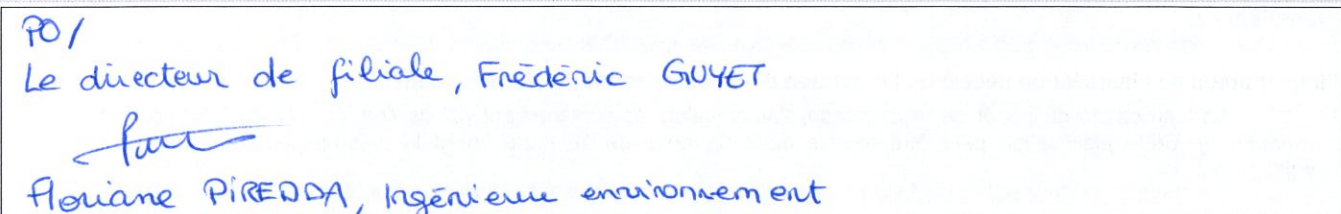 PO/
Le directeur de filiale, Frédéric GUYET
Floriane PIREDDA, Ingénieure environnement